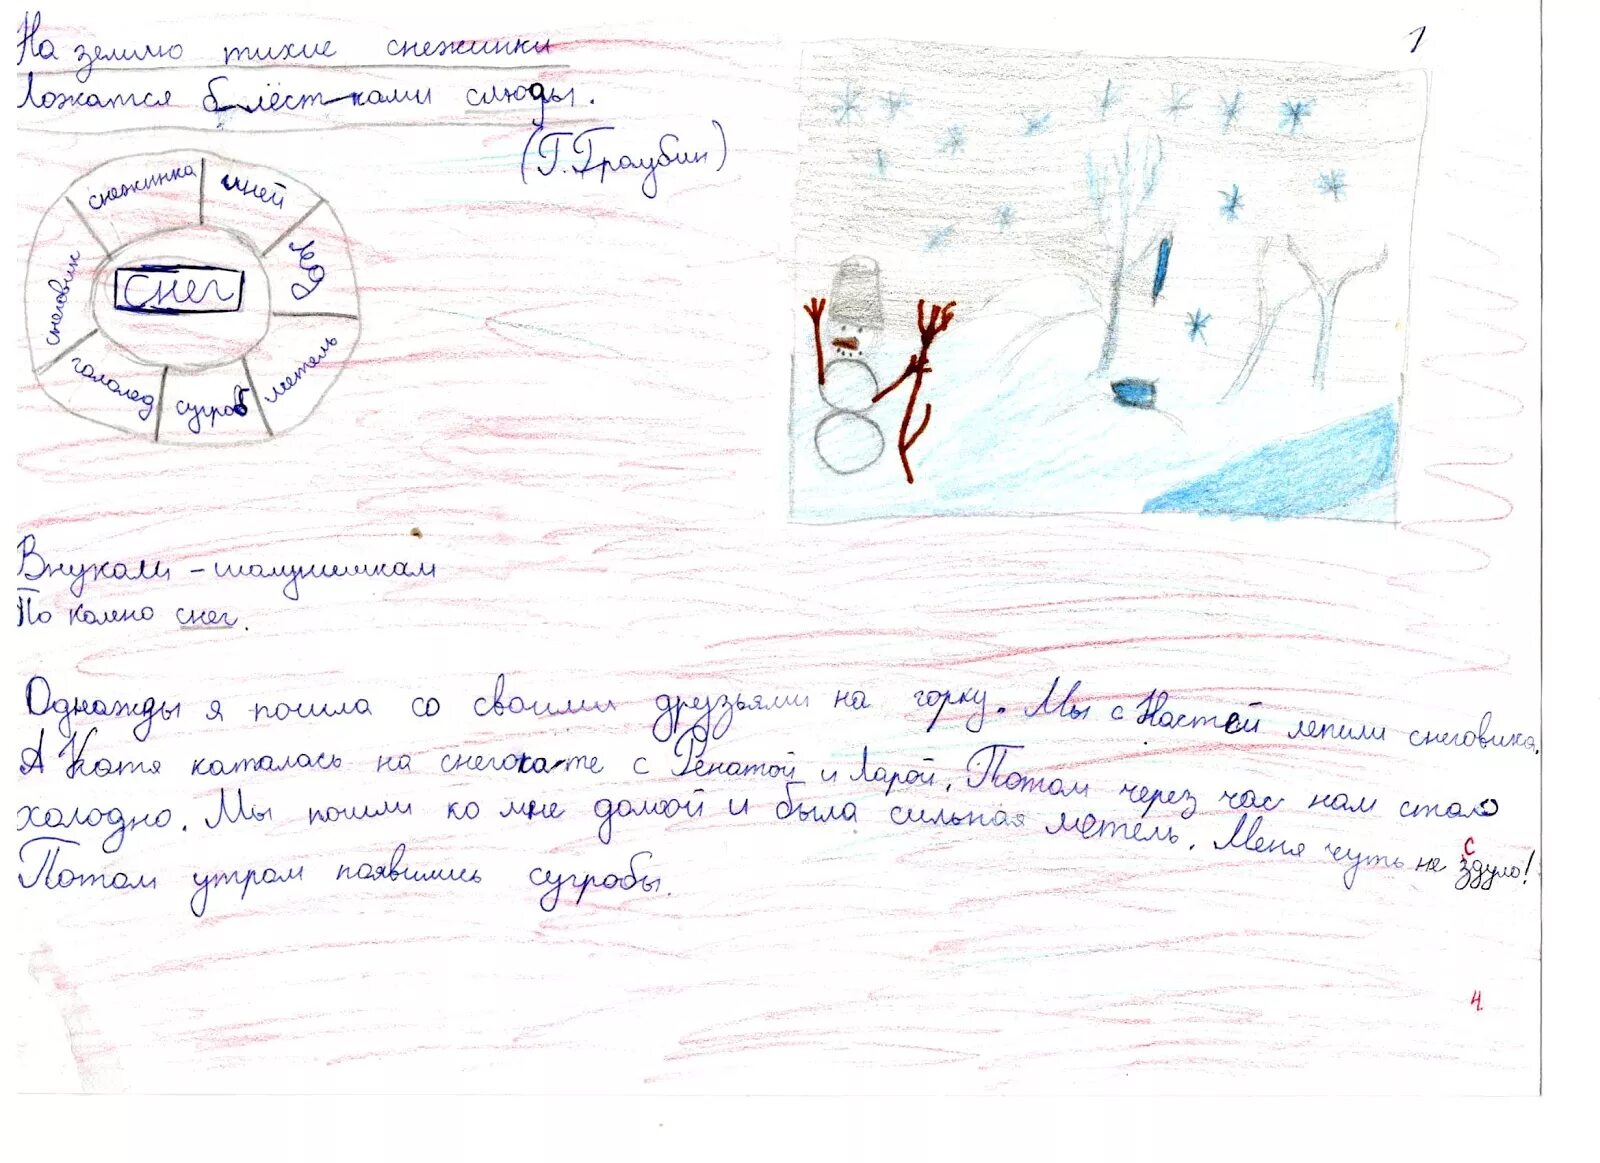 На землю тихие снежинки
Ложатся блёстками слюды.
(Г. Граубин)
1
снежинка
иней
лёд
метель
сугроб
гололед
снеговик
снег
Внукам - шалунишкам
По колено снег.
Однажды я пошла со своими друзьями на горку. Мы с Настей лепили снеговика.
А Катя каталась на снегокате с Ренатой и Ларой. Потом через час нам стало
холодно. Мы пошли ко мне домой и была сильная метель. Меня чуть не здуло!
с
Потом утром появились сугробы.
4